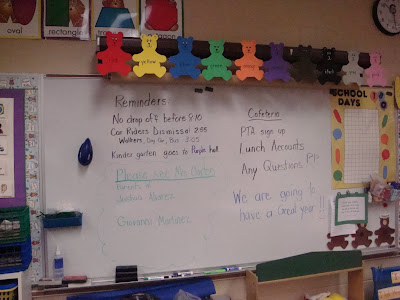 oval
rectangle
yellow
green
SCHOOL
DAYS
Reminders:
No drop off before 8:10
Car Riders Dismissal 2:55
Walkers, Day Car, Bus 3:05
Kinder garten goes to Purple hall
Please see Ms.
Parents of
Alvarez
Giovanni Martinez
Cafeteria
PTA sign up
Lunch Accounts
Any Questions
We are going to
have a Great year!!